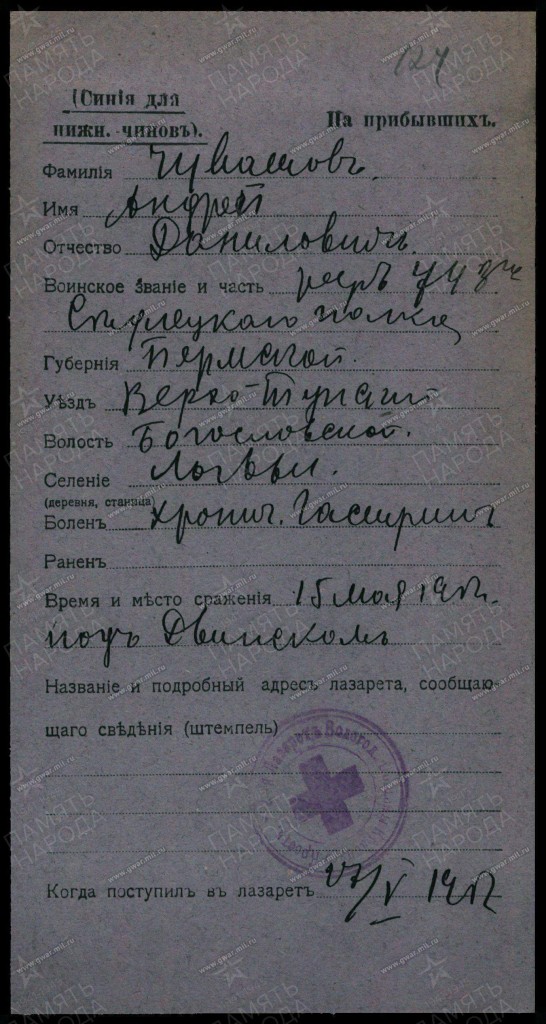 124
(Синія для
нижн. чиновъ).
На прибывшихъ.
Фамилія Чувашовъ.
Имя Андрей
Отчество Даниловичъ.
Воинское званіе и часть 74
полка
Губернія Пермской.
Уѣздъ
Волость Богословской.
Селеніе
(деревня, станица)
Боленъ Хронич. Гастритъ
Раненъ
Время и мѣсто сраженія 15 Мая 1917.
подъ Двинскомъ
Названіе и подробный адресъ лазарета, сообщаю-
щаго свѣдѣнія (штемпель)
Лазаретъ Вологод.
Когда поступилъ въ лазаретъ 27/V 1917
ПАМЯТЬ НАРОДА
www.gwar.mil.ru